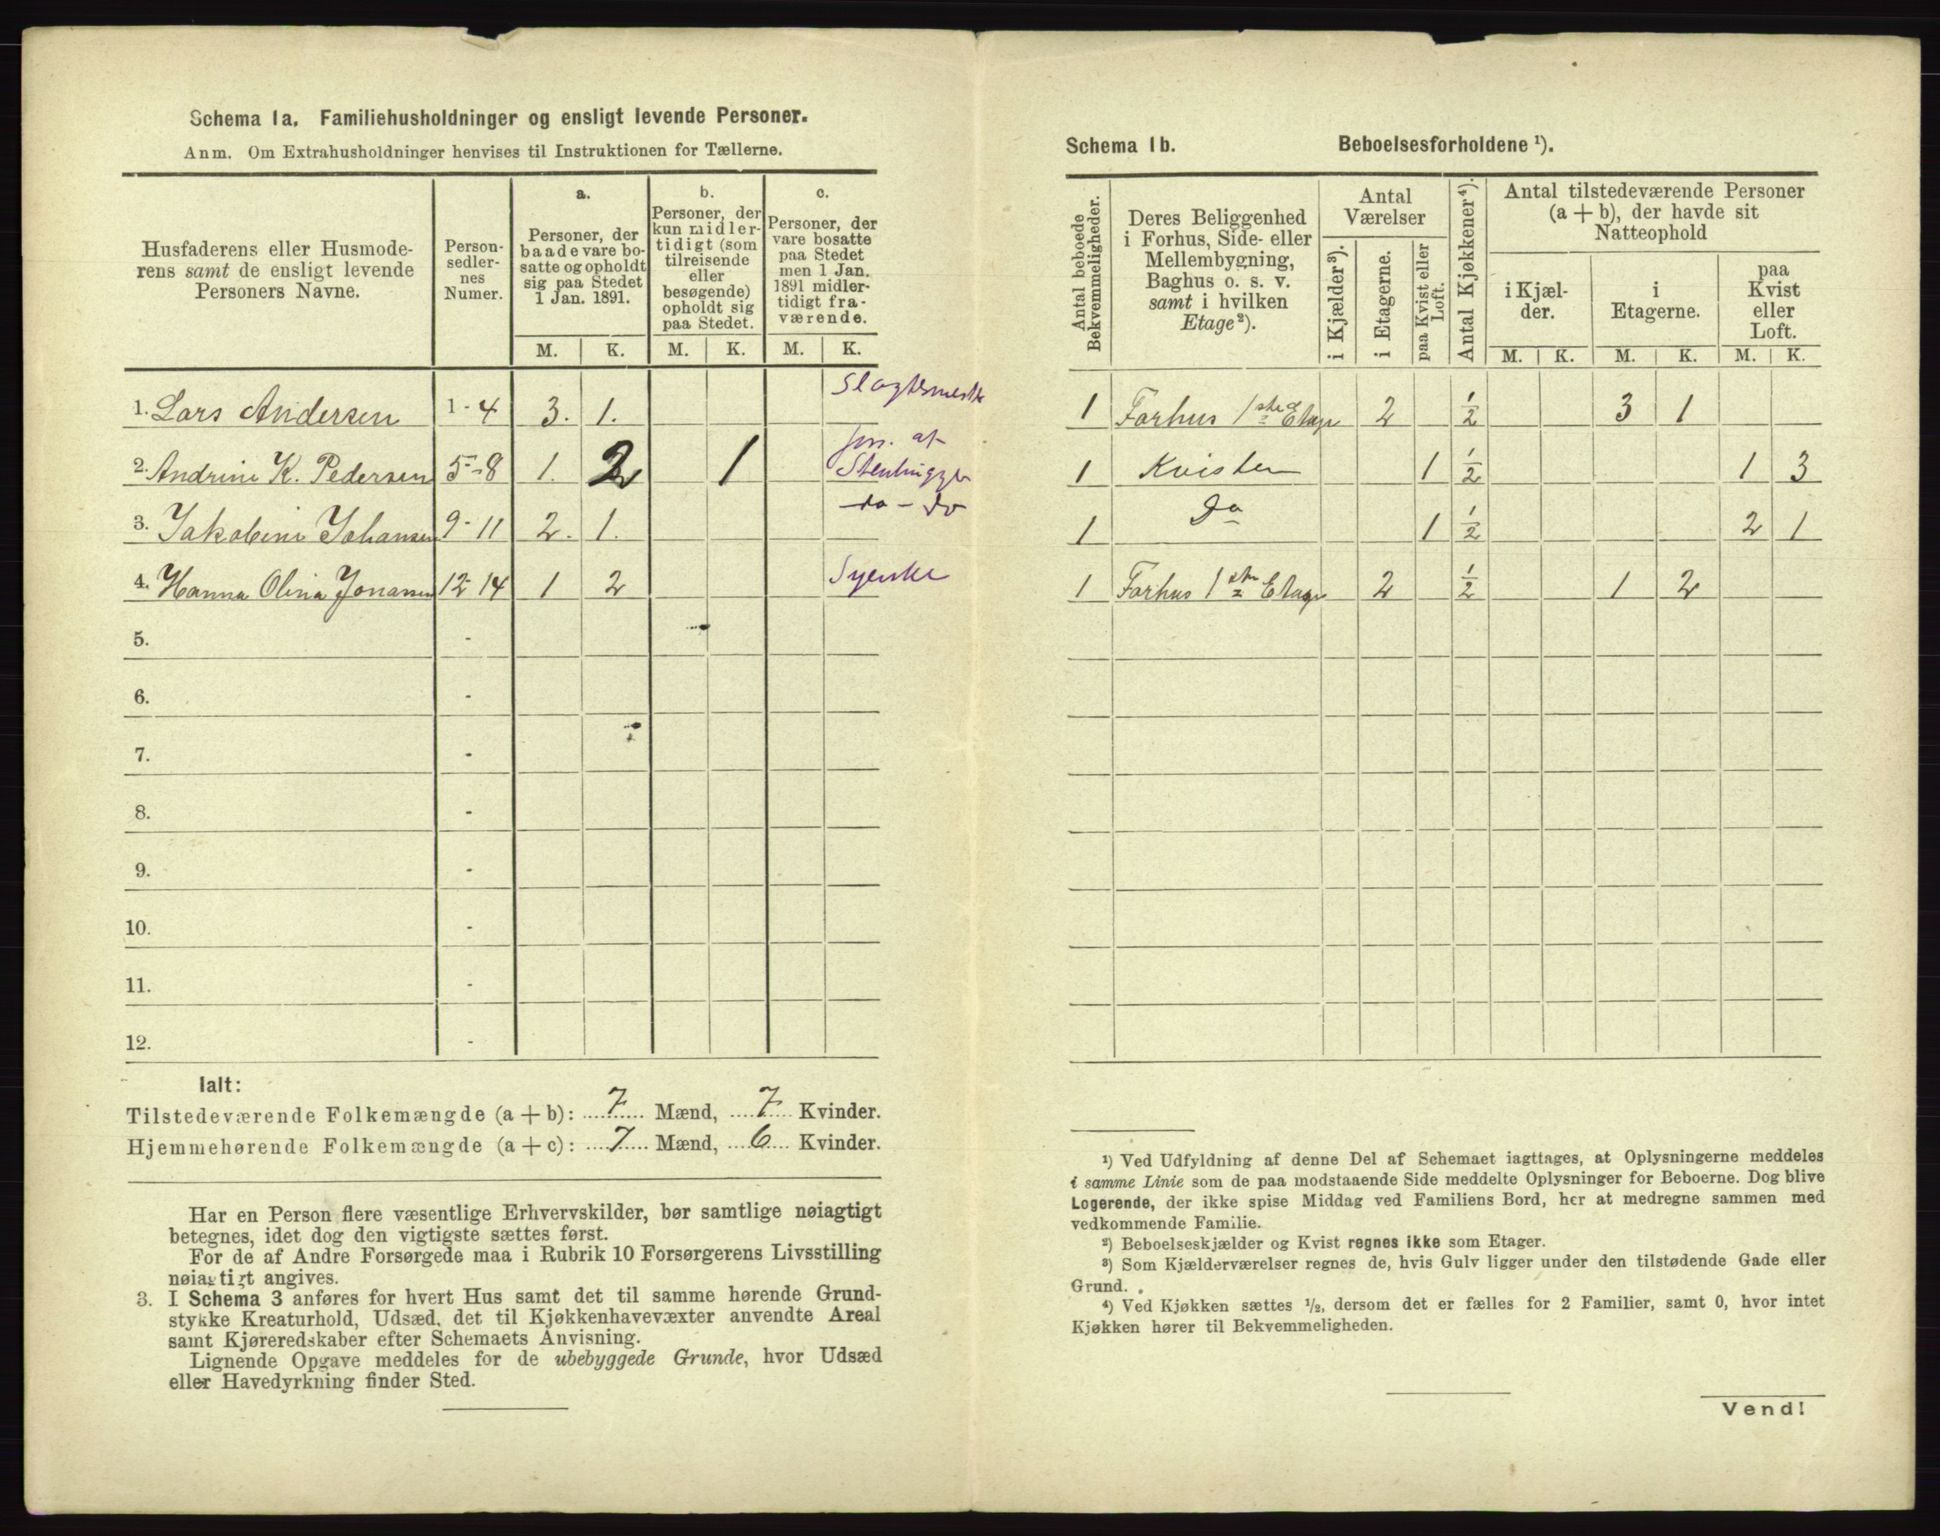 Schema 1a. Familiehusholdninger og ensligt levende Personer.
Anm. Om Extrahusholdninger henvises til Instruktionen for Tællerne.
Husfaderens eller Husmode-
rens samt de ensligt levende
Personers Navne.
Person-
sedler-
nes
Numer.
a.
Personer, der
baade vare bo-
satte og opholdt
sig paa Stedet
1 Jan. 1891.
b.
Personer, der
kun midler-
tidigt (som
tilreisende
eller
besøgende)
opholdt sig
paa Stedet.
c.
Personer, der
vare bosatte
paa Stedet
men 1 Jan.
1891 midler-
tidigt fra-
værende.
M. K. M. K. M. K.
1. Lars Andersen 1-4 3. 1. Slagtermester
2. Andrine K. Pedersen 5-8 1. 2 1 fors. af Stenhugger
3. Jakobine Johansen 9-11 2. 1. do - do
4. Hanna Olina Jonansen 12-14 1 2 Syerske
5. -
6. -
7. -
8. -
9. -
10. -
11. -
12. -
Ialt:
Tilstedeværende Folkemængde (a + b): 7 Mænd, 7 Kvinder.
Hjemmehørende Folkemængde (a + c): 7 Mænd, 6 Kvinder.
Har en Person flere væsentlige Erhvervskilder, bør samtlige nøiagtigt
betegnes, idet dog den vigtigste sættes først.
For de af Andre Forsørgede maa i Rubrik 10 Forsørgerens Livsstilling
nøiagtigt angives.
3. I Schema 3 anføres for hvert Hus samt det til samme hørende Grund-
stykke Kreaturhold, Udsæd, det til Kjøkkenhavevæxter anvendte Areal
samt Kjøreredskaber efter Schemaets Anvisning.
Lignende Opgave meddeles for de ubebyggede Grunde, hvor Udsæd
eller Havedyrkning finder Sted.
Schema 1b. Beboelsesforholdene ¹).
Antal beboede
Bekvemmeligheder.
Deres Beliggenhed
i Forhus, Side- eller
Mellembygning,
Baghus o. s. v.
samt i hvilken
Etage²).
Antal
Værelser
i Kjælder³).
i Etagerne.
paa Kvist eller
Loft.
Antal Kjøkkener⁴).
Antal tilstedeværende Personer
(a + b), der havde sit
Natteophold
i Kjæl-
der.
i
Etagerne.
paa
Kvist
eller
Loft.
M. K. M. K. M. K.
1 Forhus 1ste Etage 2 1/2 3 1
1 Kvisten 1 1/2 1 3
1 Do 1 1/2 2 1
1 Forhus 1ste Etage 2 1/2 1 2
¹) Ved Udfyldning af denne Del af Schemaet iagttages, at Oplysningerne meddeles
i samme Linie som de paa modstaaende Side meddelte Oplysninger for Beboerne. Dog blive
Logerende, der ikke spise Middag ved Familiens Bord, her at medregne sammen med
vedkommende Familie.
²) Beboelseskjælder og Kvist regnes ikke som Etager.
³) Som Kjælderværelser regnes de, hvis Gulv ligger under den tilstødende Gade eller
Grund.
⁴) Ved Kjøkken sættes ½, dersom det er fælles for 2 Familier, samt 0, hvor intet
Kjøkken hører til Bekvemmeligheden.
Vend!